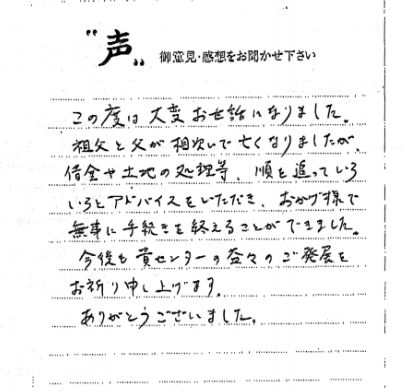 "声" 御意見・感想をお聞かせ下さい
この度は大変お世話になりました。
祖父と父が相次いで亡くなりましたが、
借金や土地の処理等、順を追っていろ
いろとアドバイスをいただき、おかげ様で
無事に手続きを終えることができました。
今後も貴センターの益々のご発展を
お祈り申し上げます。
ありがとうございました。